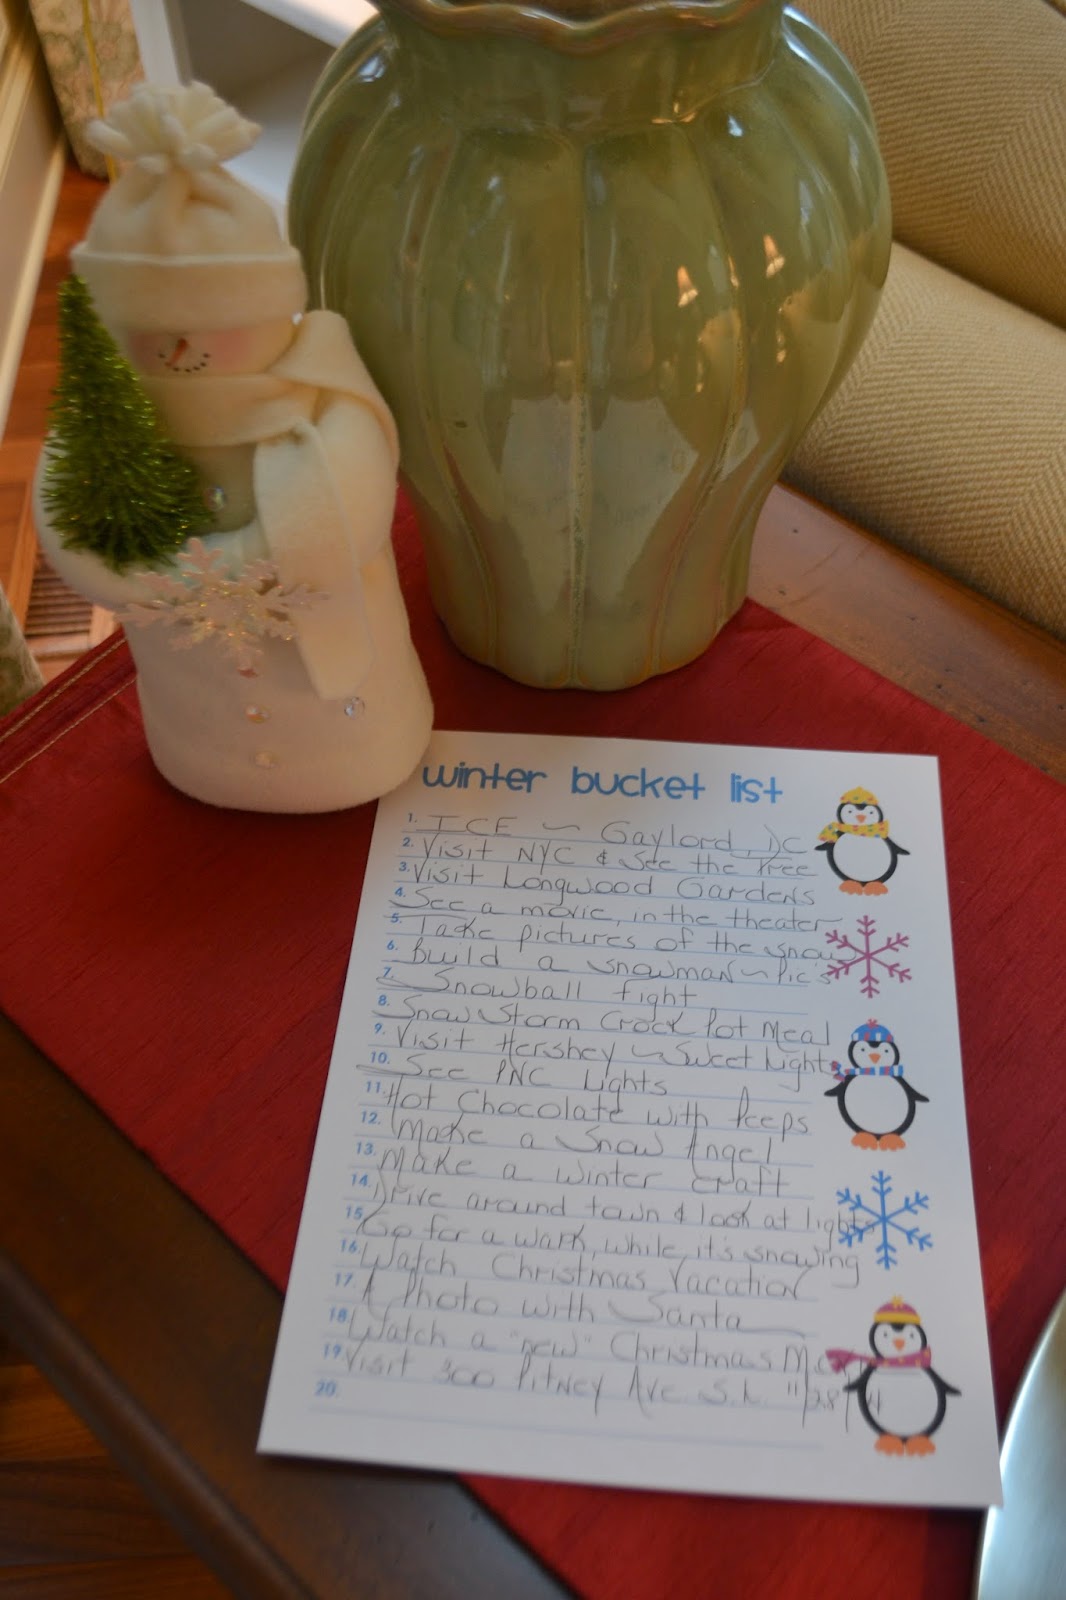 winter bucket list
1. ICE ~ Gaylord, DC
2. Visit NYC & see the Tree
3. Visit Longwood Gardens
4. See a movie, in the theater
5. Take pictures of the snow
6. Build a snowman ~ pic's
7. Snowball fight
8. Snow Storm Crock Pot Meal
9. Visit Hershey ~ Sweet Lights
10. See PNC Lights
11. Hot Chocolate with Peeps
12. Make a Snow Angel
13. Make a winter craft
14. Drive around town & look at lights
15. Go for a walk, while it's snowing
16. Watch Christmas Vacation
17. A Photo with Santa
18. Watch a "new" Christmas
19. Visit 300 Pitney Ave S.L.
20.